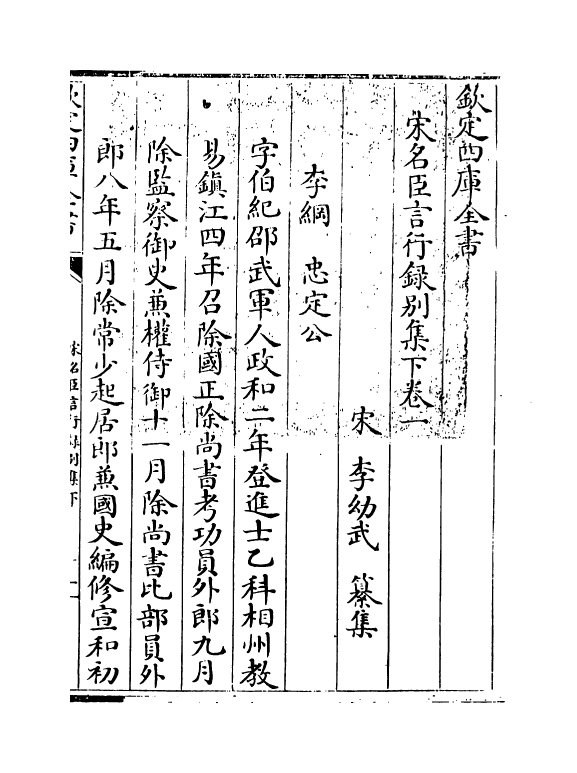 欽定四庫全書
宋名臣言行録别集下卷一
宋 李幼武 纂集
李綱 忠定公
字伯紀邵武軍人政和二年登進士乙科相州教
易鎮江四年召除國正除尚書考功員外郎九月
除監察御史兼權侍御十一月除尚書比部員外
郎八年五月除常少起居郎兼國史編修宣和初
欽定四庫全書
宋名臣言行録别集下